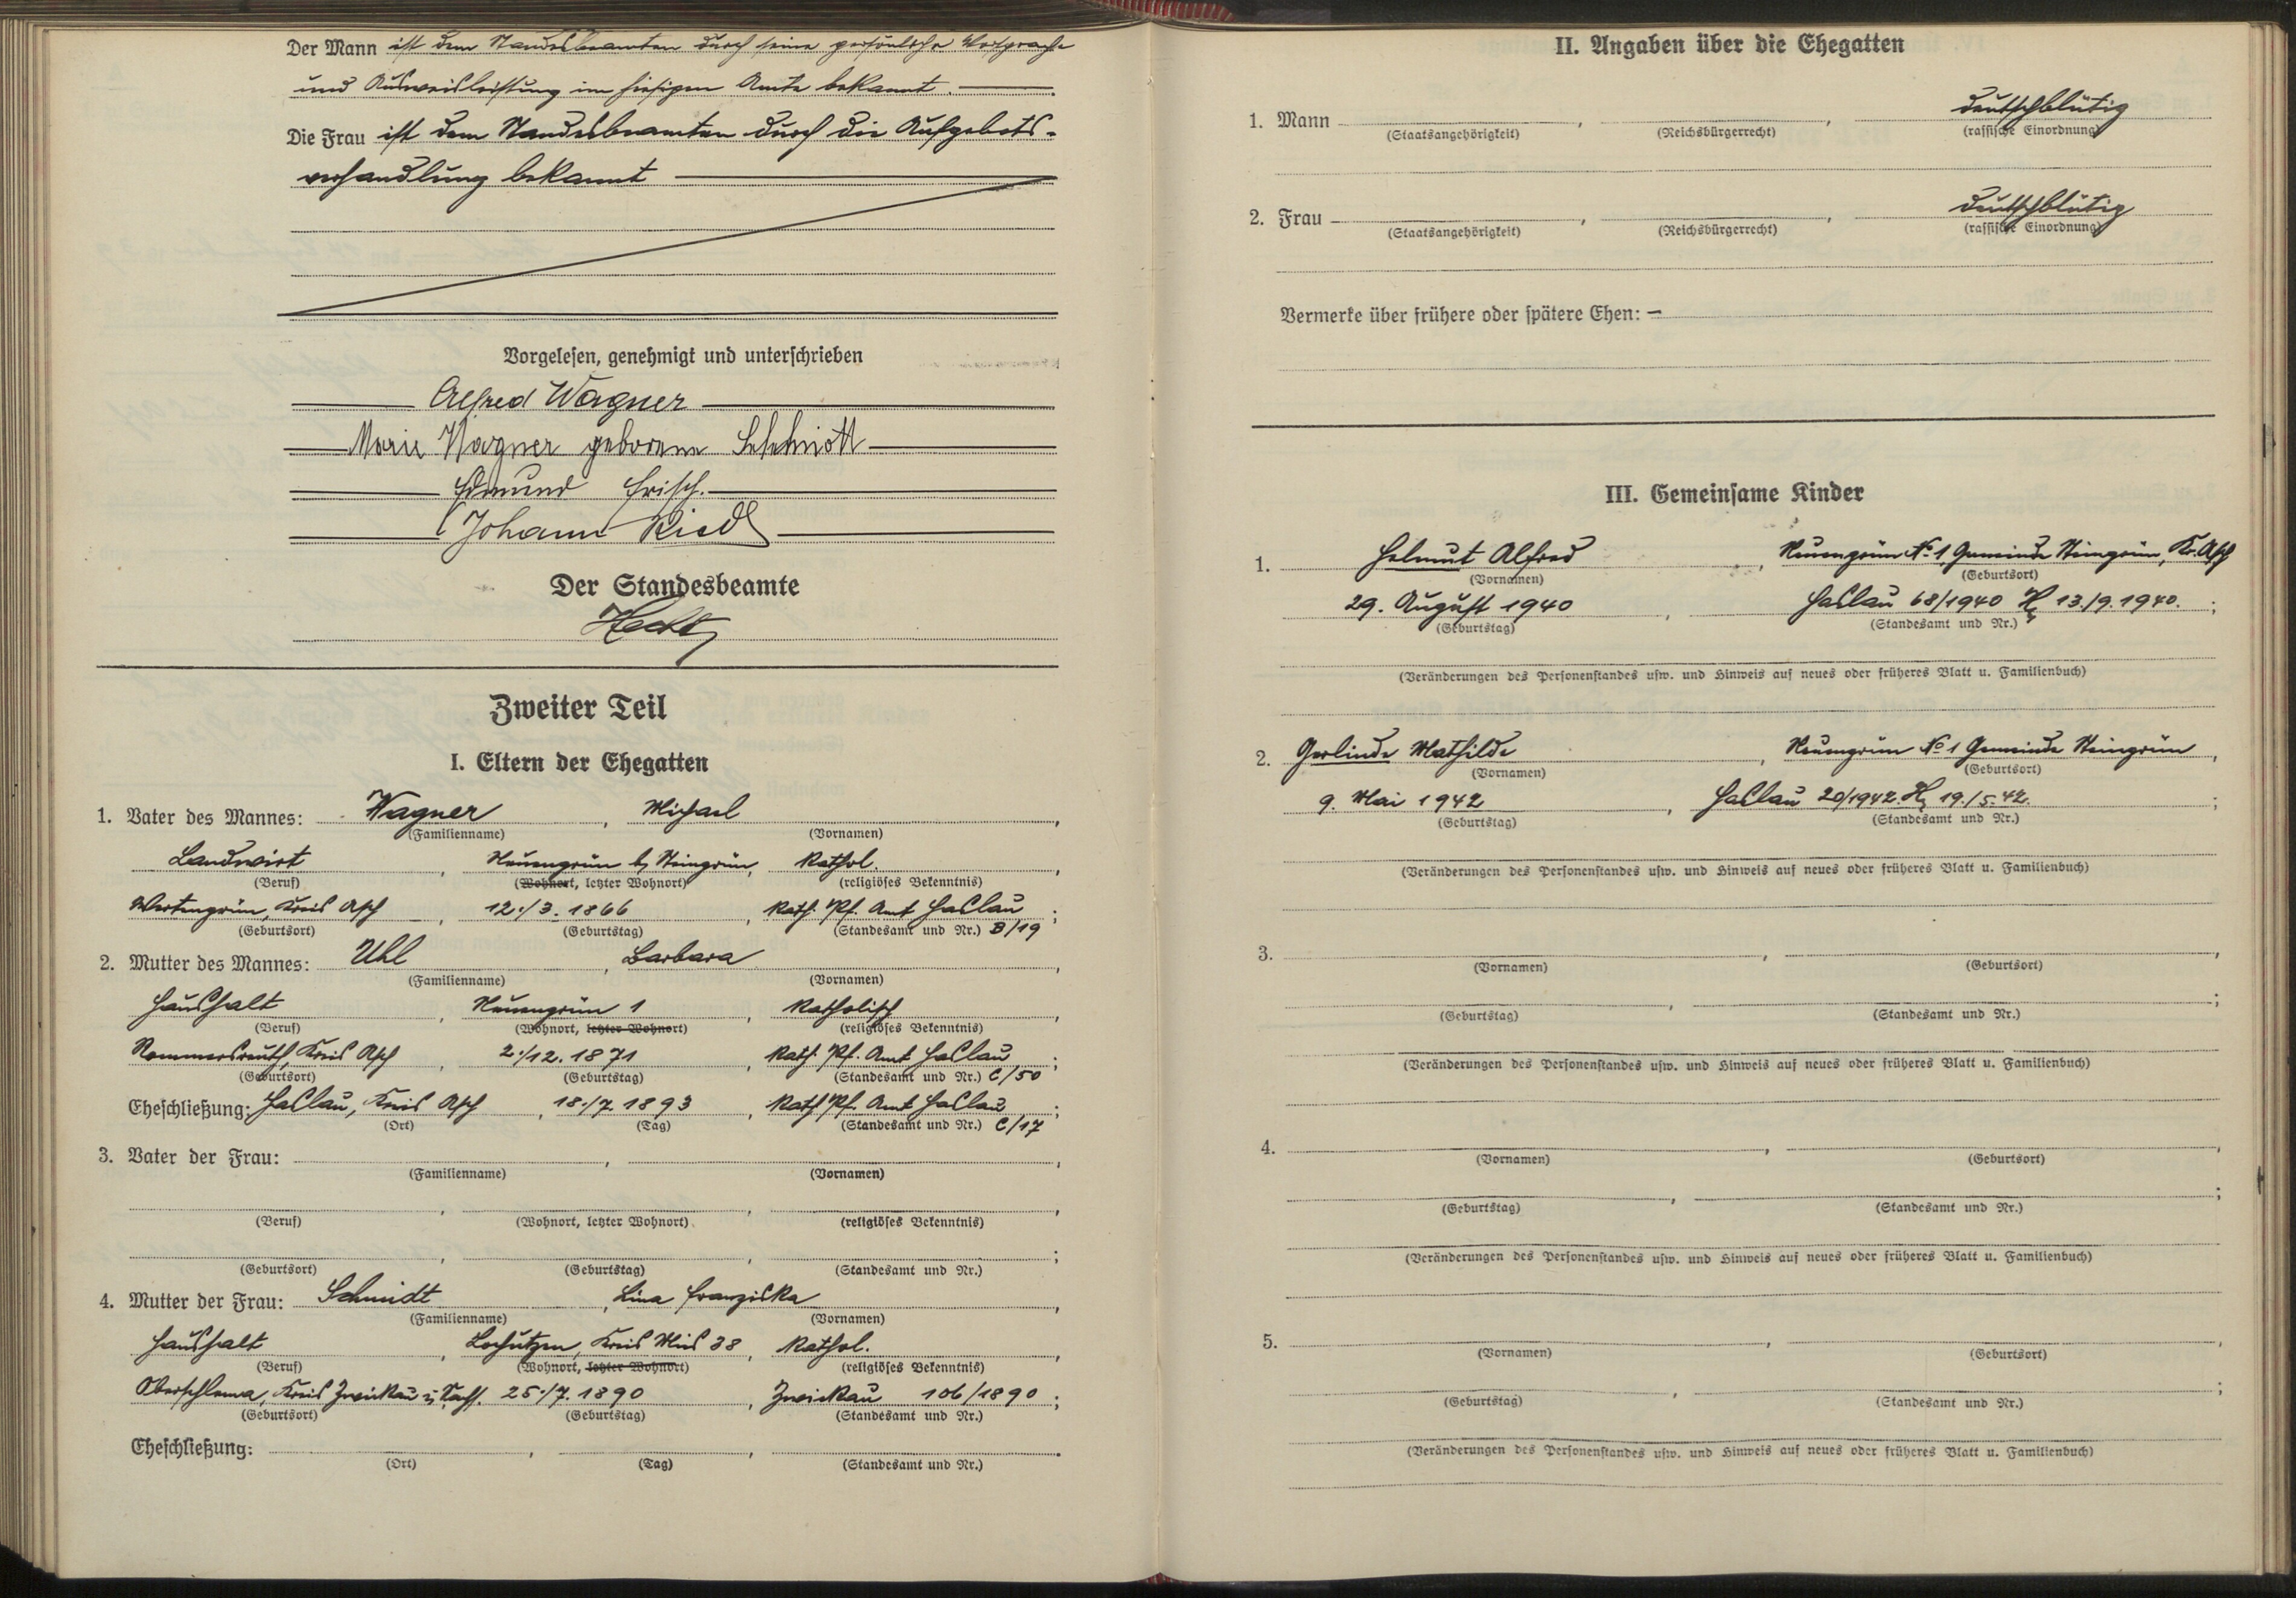 Der Mann ist dem Standesbeamten durch seine persönliche Vorsprache
und Ausweisleistung im hiesigen Amte bekannt.
Die Frau ist dem Standesbeamten durch die Aufgebots-
verhandlung bekannt
Vorgelesen, genehmigt und unterschrieben
Alfred Wagner
Marie Wagner geborene Schmidt
Edmund Frisch.
Johann Riedl
Der Standesbeamte
Zweiter Teil
I. Eltern der Ehegatten
1. Vater des Mannes: Wagner, Michael,
(Familienname) (Vornamen)
Landwirt, Neuengrün b/ Steingrün, kathol.,
(Beruf) (Wohnort, letzter Wohnort) (religiöses Bekenntnis)
Kreis Asch, 12./3. 1866, kath. Pf. Amt Haslau;
(Geburtsort) (Geburtstag) (Standesamt und Nr.) B/19
2. Mutter des Mannes: Uhl, Barbara,
(Familienname) (Vornamen)
Haushalt, Neuengrün 1, katholisch,
(Beruf) (Wohnort, letzter Wohnort) (religiöses Bekenntnis)
Rommersreuth, Kreis Asch, 2./12. 1871, kath. Pf. Amt Haslau;
(Geburtsort) (Geburtstag) (Standesamt und Nr.) C/50
Eheschließung: Haslau, Kreis Asch, 18./7. 1893, kath Pf. Amt Haslau;
(Ort) (Tag) (Standesamt und Nr.) C/17
3. Vater der Frau: , ,
(Familienname) (Vornamen)
(Beruf) (Wohnort, letzter Wohnort) (religiöses Bekenntnis)
(Geburtsort) (Geburtstag) (Standesamt und Nr.)
4. Mutter der Frau: Schmidt, Lina Franziska,
(Familienname) (Vornamen)
Haushalt, Lochutzen, Kreis Mies 38, kathol.,
(Beruf) (Wohnort, letzter Wohnort) (religiöses Bekenntnis)
Oberschlema, Kreis Zwickau i/ Sachs. 25./7. 1890, Zwickau 106/1890;
(Geburtsort) (Geburtstag) (Standesamt und Nr.)
Eheschließung: , , .
(Ort) (Tag) (Standesamt und Nr.)
II. Angaben über die Ehegatten
1. Mann , , deutschblütig
(Staatsangehörigkeit) (Reichsbürgerrecht) (rassische Einordnung)
2. Frau , , deutschblütig
(Staatsangehörigkeit) (Reichsbürgerrecht) (rassische Einordnung)
Vermerke über frühere oder spätere Ehen: —
III. Gemeinsame Kinder
1. Helmut Alfred, Neuengrün No 1, Gemeinde Steingrün, Kr. Asch
(Vornamen) (Geburtsort)
29. August 1940, Haslau 68/1940 13./9. 1940.;
(Geburtstag) (Standesamt und Nr.)
(Veränderungen des Personenstandes usw. und Hinweis auf neues oder früheres Blatt u. Familienbuch)
2. Gerlinde Mathilde, Neuengrün No 1 Gemeinde Steingrün,
(Vornamen) (Geburtsort)
9. Mai 1942, Haslau 20/1942. 19./5. 42.;
(Geburtstag) (Standesamt und Nr.)
(Veränderungen des Personenstandes usw. und Hinweis auf neues oder früheres Blatt u. Familienbuch)
3. , ,
(Vornamen) (Geburtsort)
(Geburtstag) (Standesamt und Nr.)
(Veränderungen des Personenstandes usw. und Hinweis auf neues oder früheres Blatt u. Familienbuch)
4. , ,
(Vornamen) (Geburtsort)
(Geburtstag) (Standesamt und Nr.)
(Veränderungen des Personenstandes usw. und Hinweis auf neues oder früheres Blatt u. Familienbuch)
5. , ,
(Vornamen) (Geburtsort)
(Geburtstag) (Standesamt und Nr.)
(Veränderungen des Personenstandes usw. und Hinweis auf neues oder früheres Blatt u. Familienbuch)